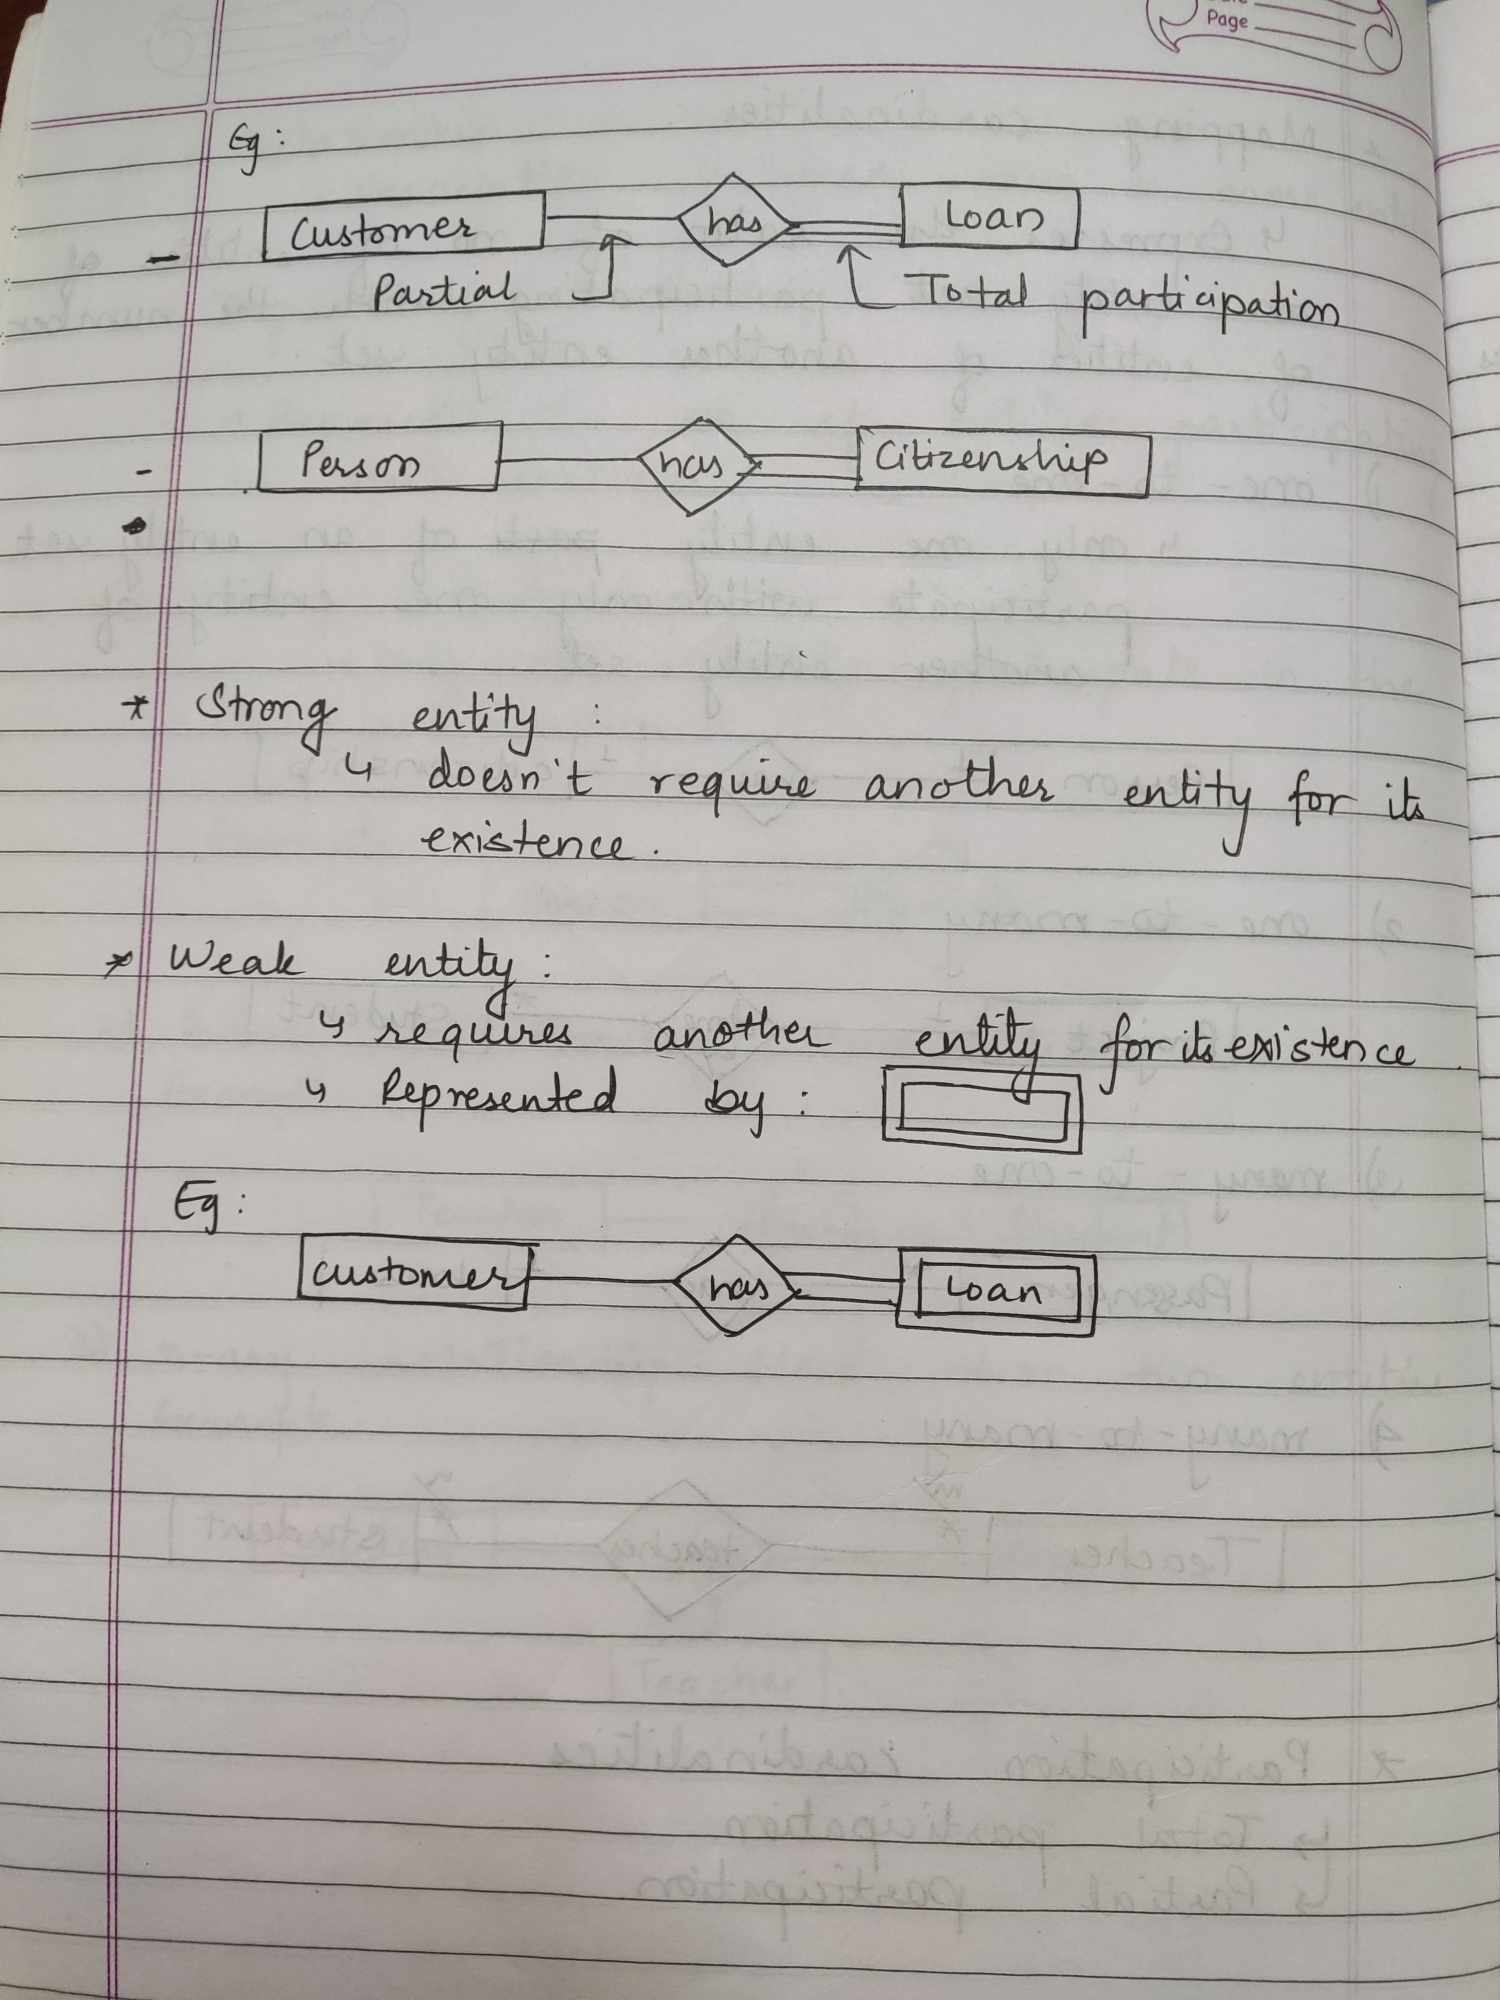 Page
Eg :
Customer has Loan
Partial Total participation
Person has Citizenship
* Strong entity :
↳ doesn't require another entity for its
existence.
* Weak entity :
↳ requires another entity for its existence.
↳ Represented by :
Eg :
customer has Loan